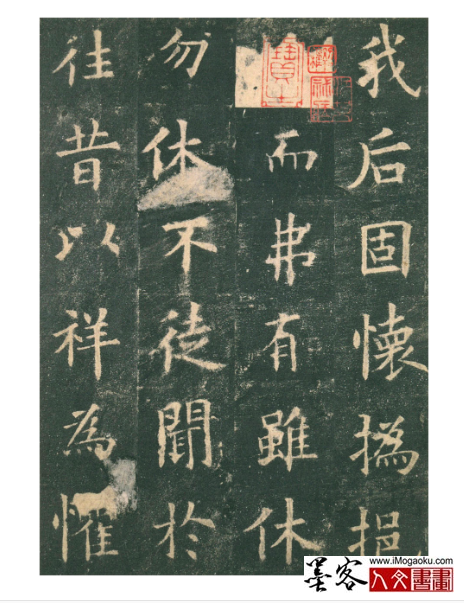 我后固懷撝挹
而弗有雖休
勿休不徒聞於
往昔以祥為懼
www.iMogaoku.com
墨客